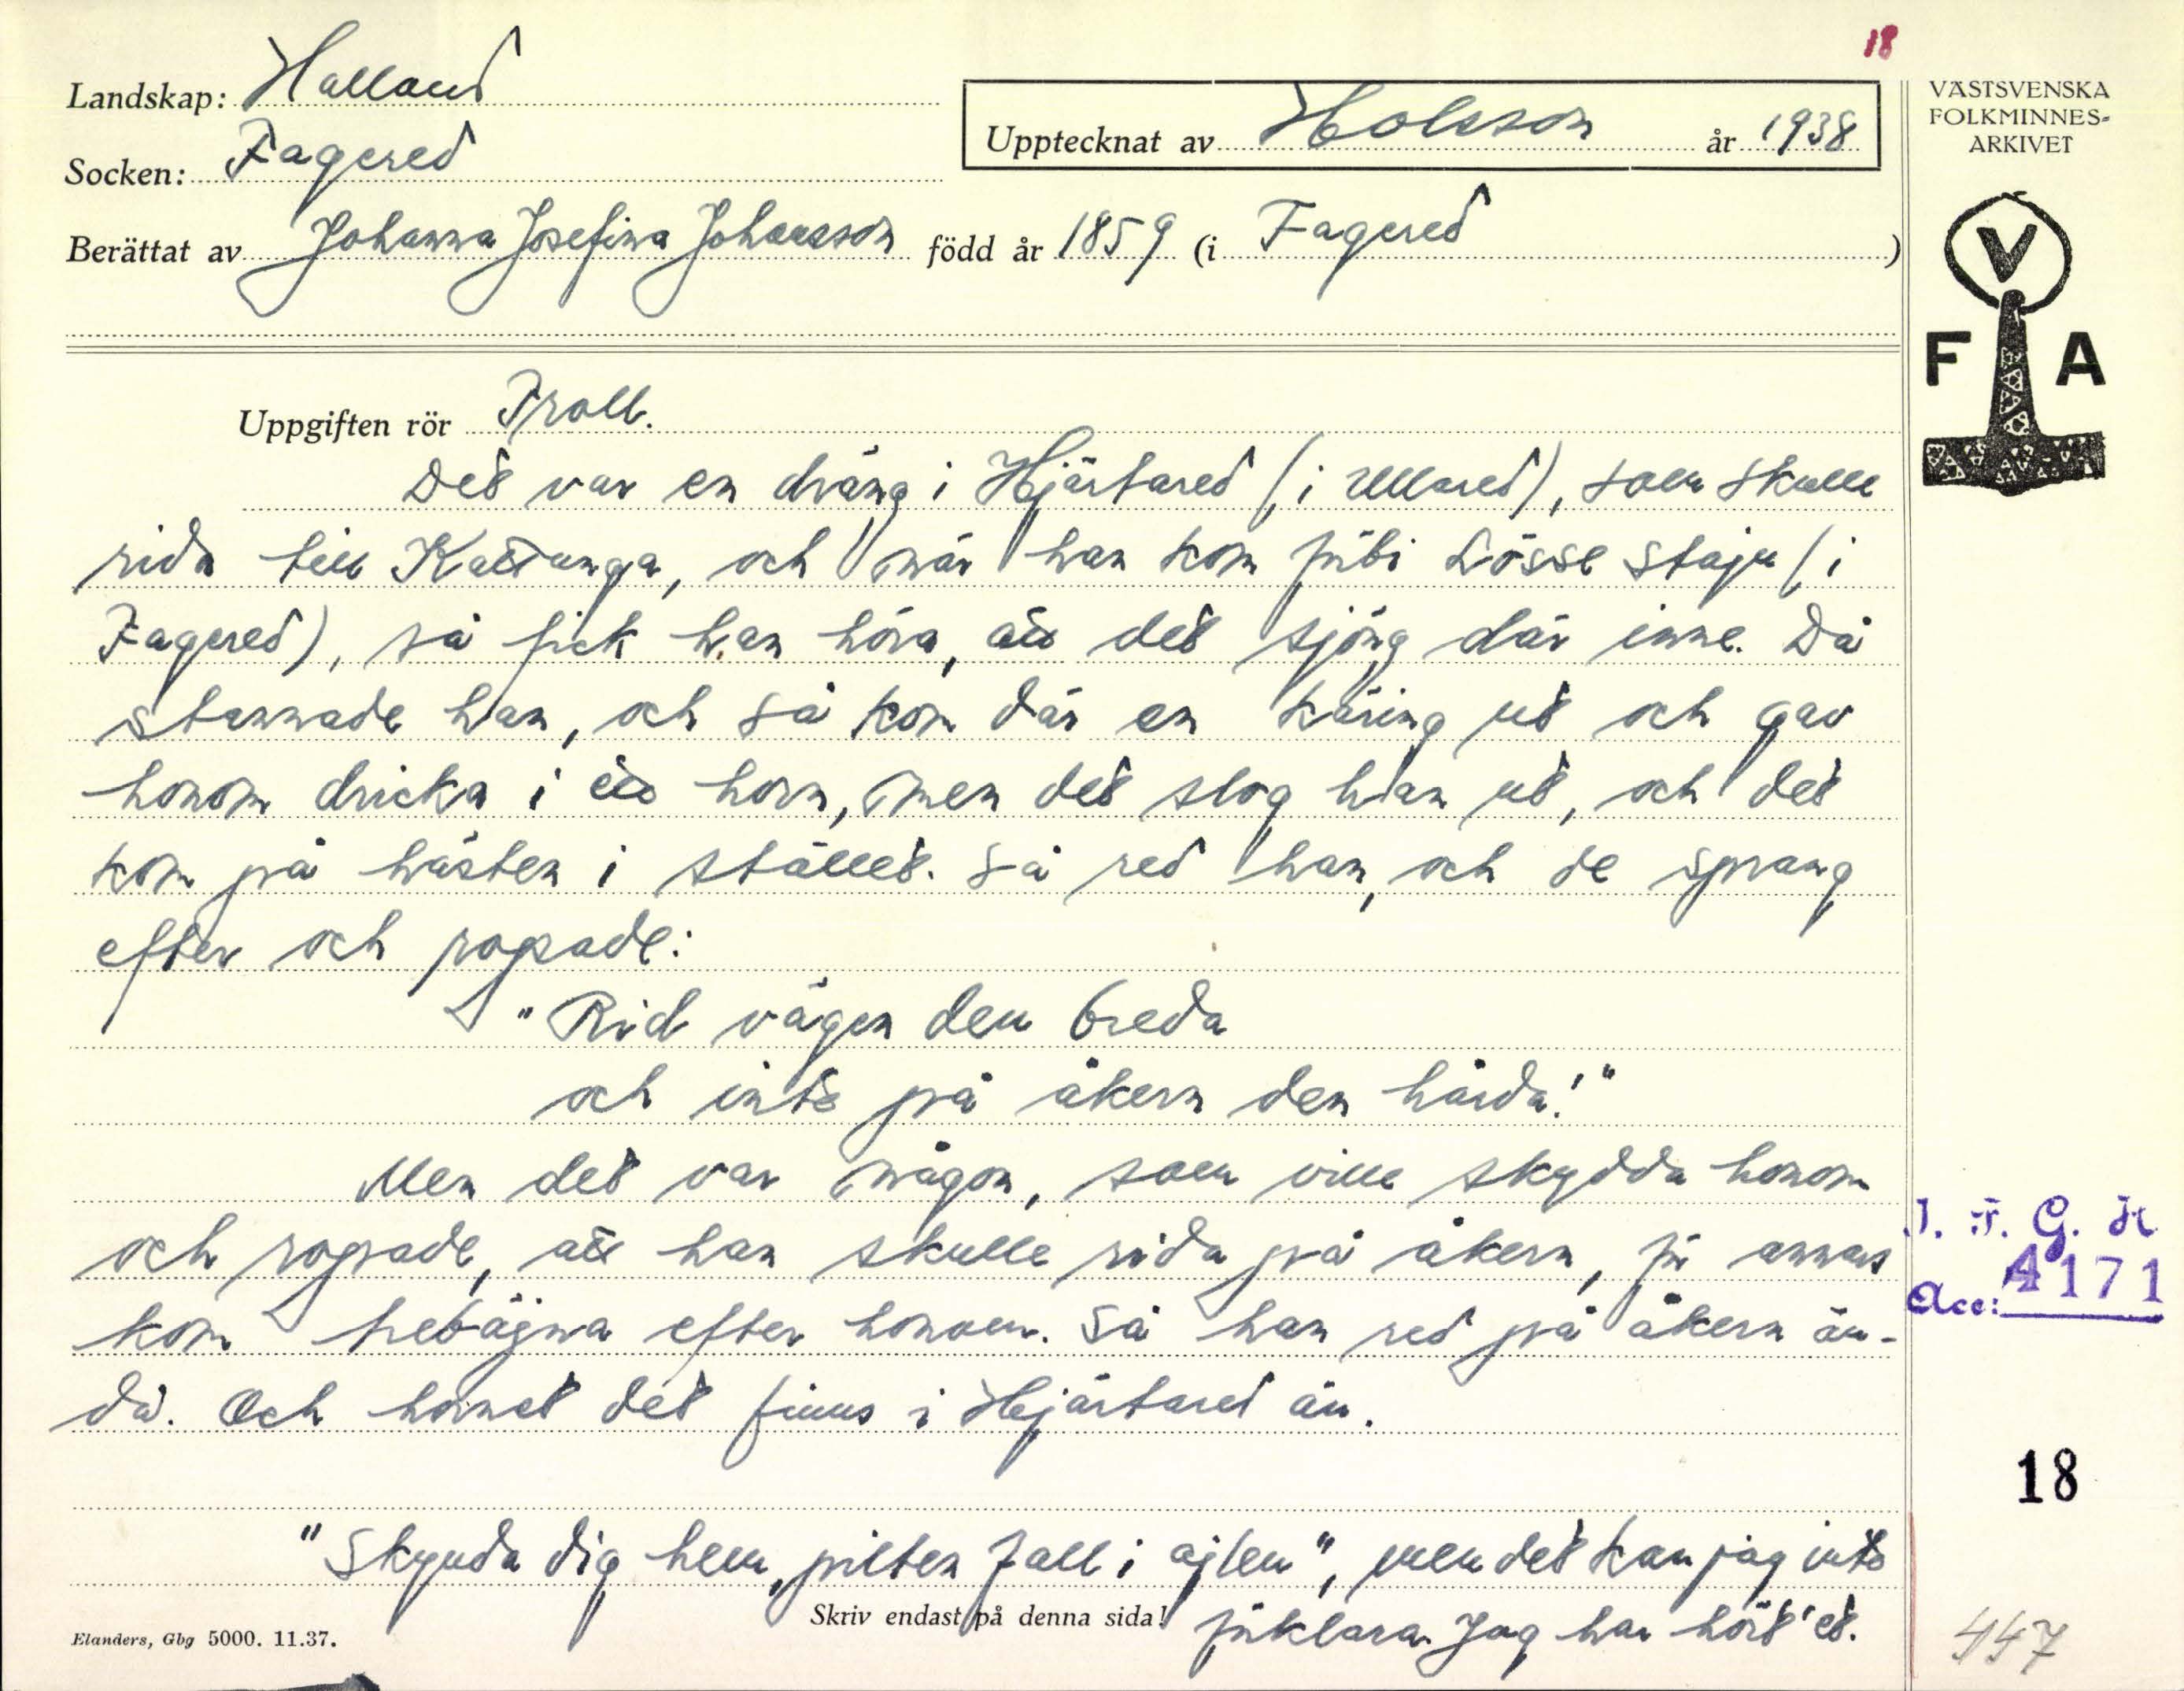 18
Landskap: Halland
Socken: Fagered
Upptecknat av Holsson år 1938
Berättat av Johanna Josefina Johansson född år 1859 (i Fagered)
VÄSTSVENSKA
FOLKMINNES-
ARKIVET
V
F A
Uppgiften rör Troll.
Det var en dräng i Hjärtared (i Ullared), som skulle
rida till Kattunga, och när han kom förbi Lösse staju (i
Fagered), så fick han höra, att det sjöng där inne. Då
stannade han, och så kom där en käring ut och gav
honom dricka i ett horn, men det slog han ut, och det
kom på hästen i stället. Så red han, och de sprang
efter och ropade:
"Rid vägen den breda
och inte på åkern den hårda!"
Men det var någon, som ville skydda honom
och ropade, att han skulle rida på åkern, för annars
kom trebäjna efter honom. Så han red på åkern än-
då. Och hornet det finns i Hjärtared än.
"Skynda dig hem, pilten Fall i ajlen", men det kan jag inte
förklara. Jag har hört'et.
I. F. G. H
Acc: 4171
18
Skriv endast på denna sida!
Elanders, Gbg 5000. 11.37.
447